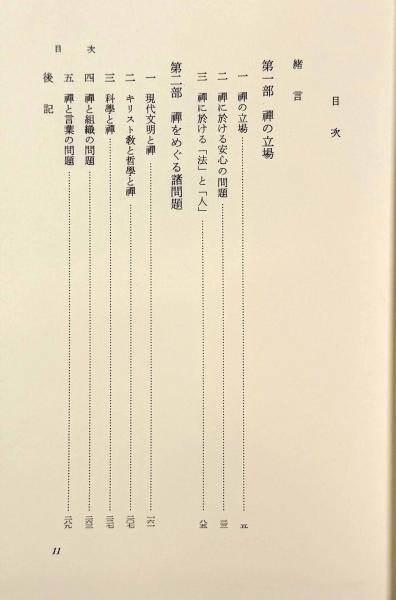 目次
緒言
第一部 禪の立場
一 禪の立場 五
二 禪に於ける安心の問題 三三
三 禪に於ける「法」と「人」 八五
第二部 禪をめぐる諸問題
一 現代文明と禪 一六一
二 キリスト教と哲學と禪 二〇七
三 科學と禪 二三七
四 禪と組織の問題 二六三
五 禪と言葉の問題 二八九
後記
目次
11